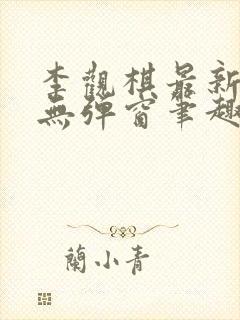 李觀棋最新
無彈窗筆趣
蘭小青